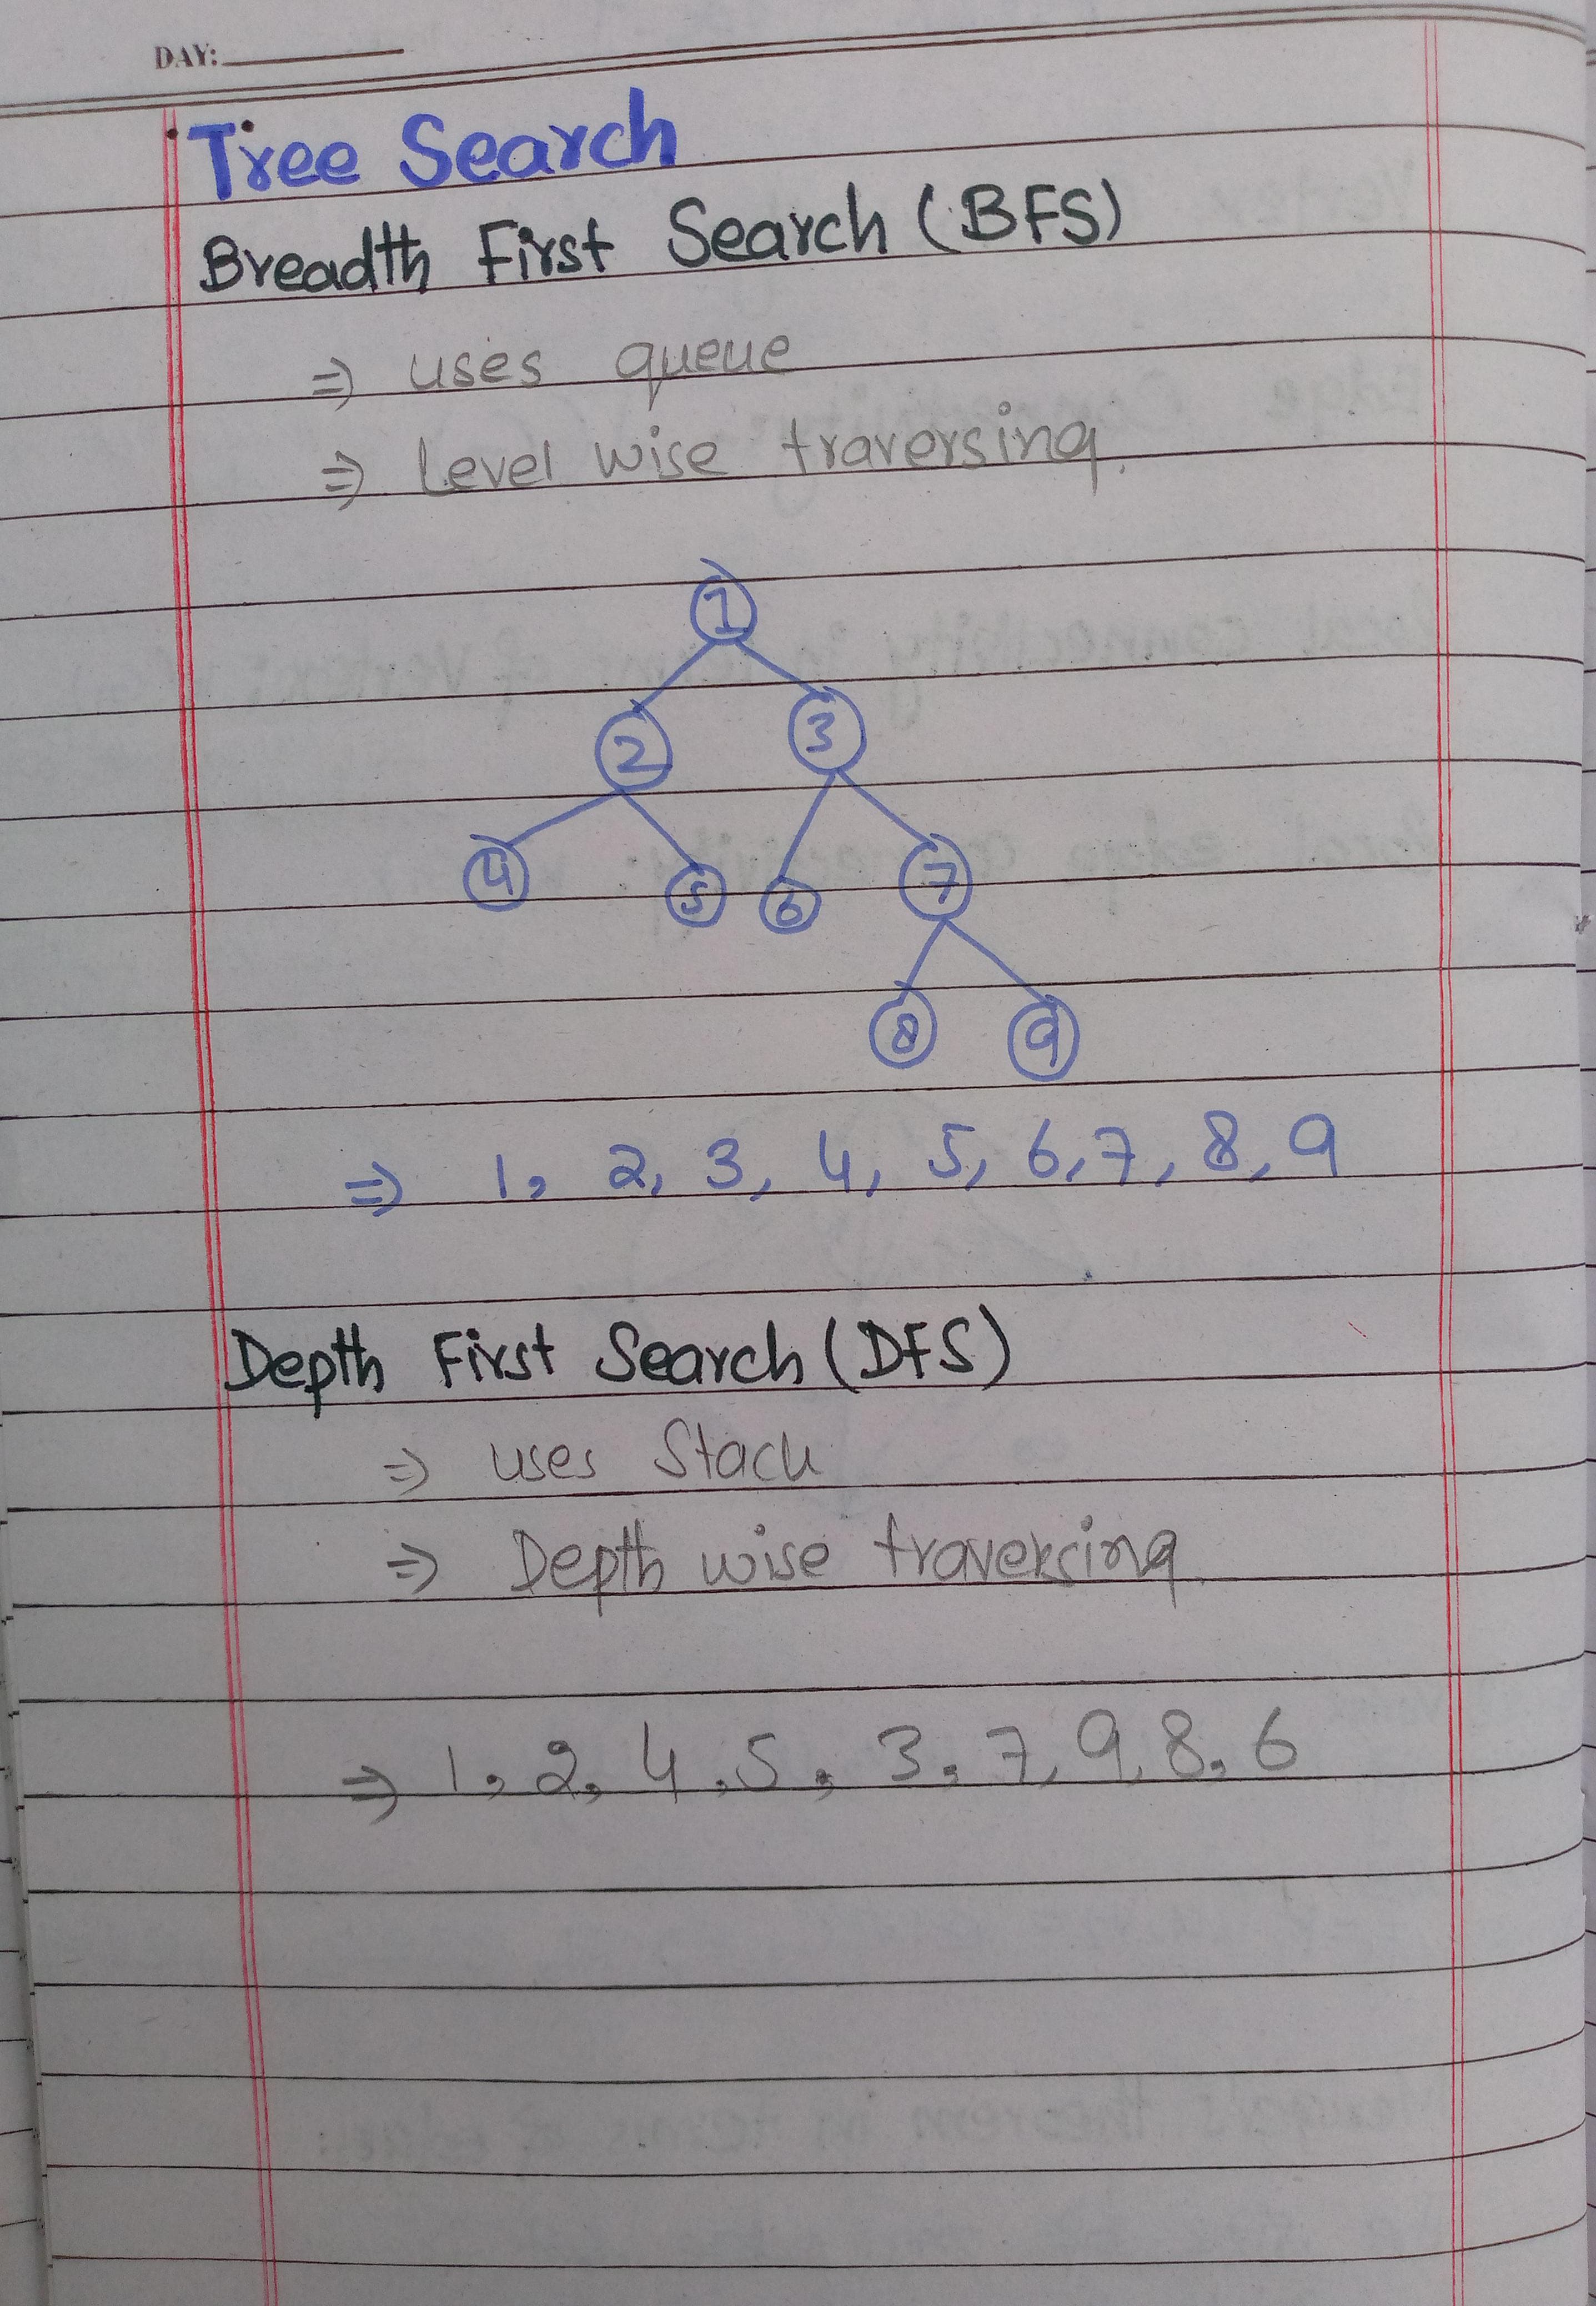 DAY:
Tree Search
Breadth First Search (BFS)
⇒ uses queue
⇒ Level wise traversing.
1
2 3
4 5 6 7
8 9
⇒ 1, 2, 3, 4, 5, 6, 7, 8, 9
Depth First Search (DFS)
⇒ uses Stack
⇒ Depth wise traversing.
⇒ 1, 2, 4, 5, 3, 7, 9, 8, 6